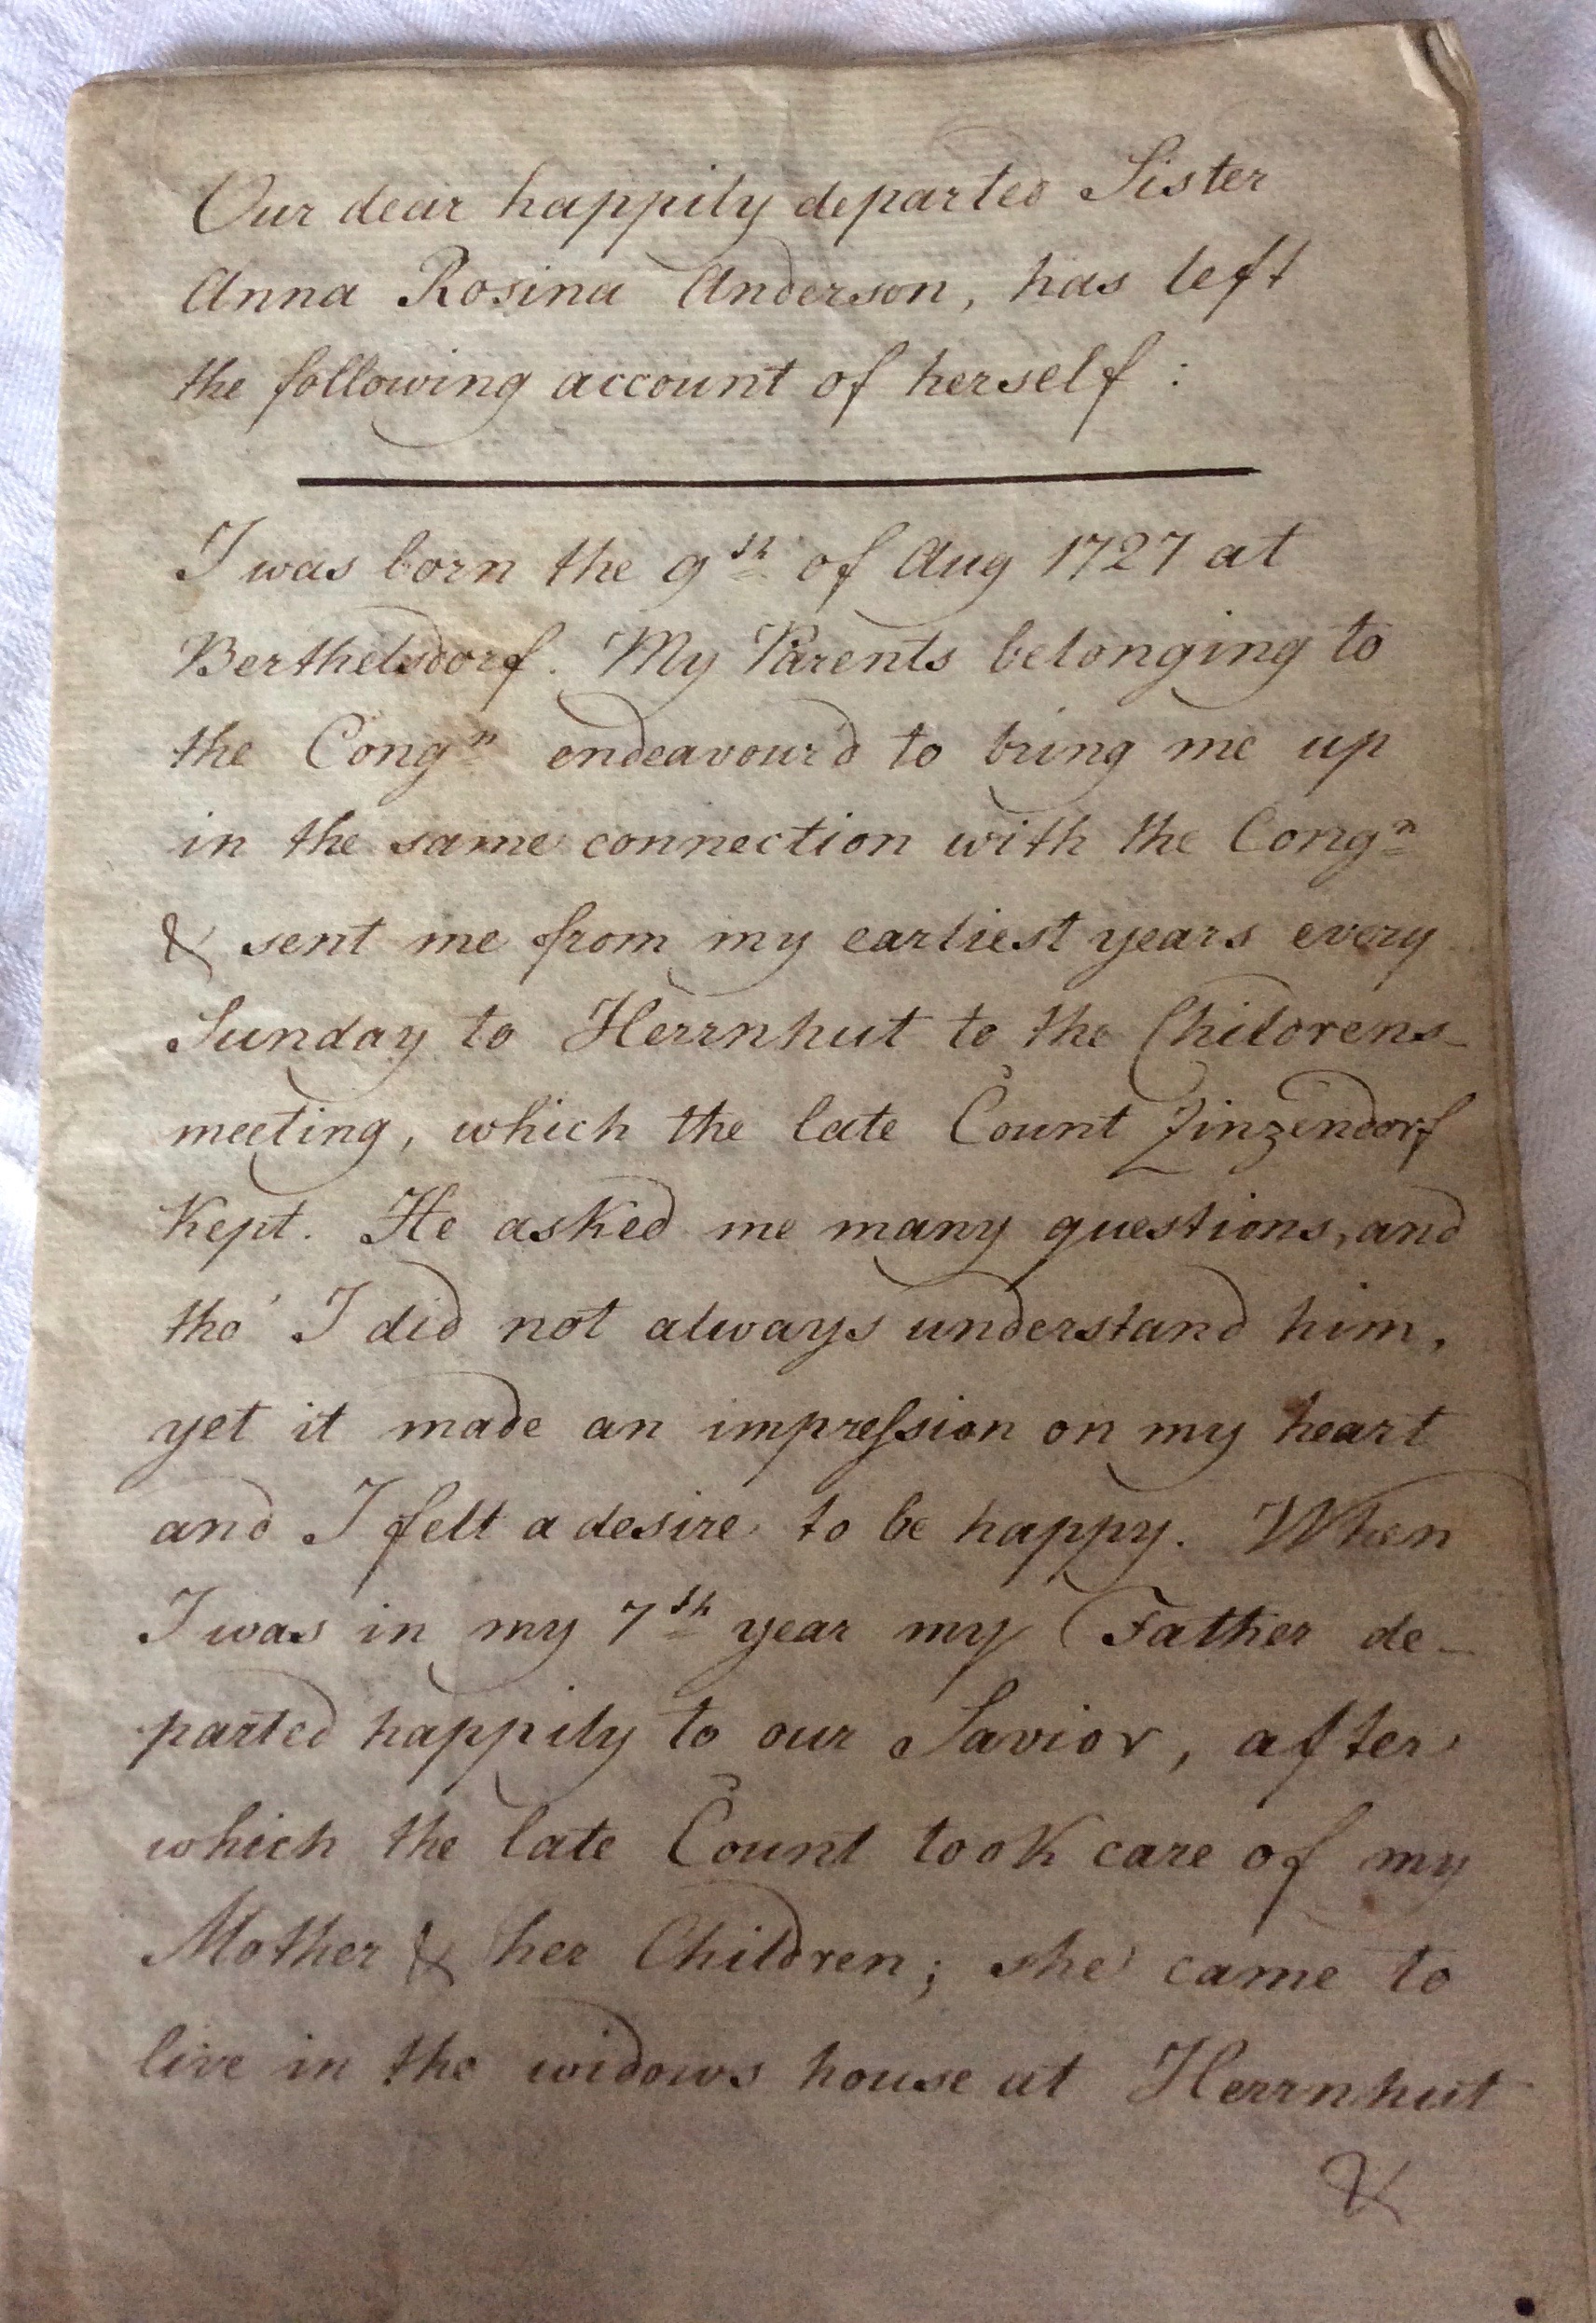 Our dear happily departed Sister
Anna Rosina Anderson, has left
the following account of herself :
I was born the 9th of Aug 1727 at
Berthelsdorf. My Parents belonging to
the Congn endeavour'd to bring me up
in the same connection with the Congn
& sent me from my earliest years every
Sunday to Herrnhut to the Childrens-
meeting, which the late Count Zinzendorf
kept. He asked me many questions, and
tho' I did not always understand him,
yet it made an impreſsion on my heart
and I felt a desire to be happy. When
I was in my 7th year my Father de-
parted happily to our Savior, after
which the late Count took care of my
Mother & her Children; she came to
live in the widows house at Herrnhut
&